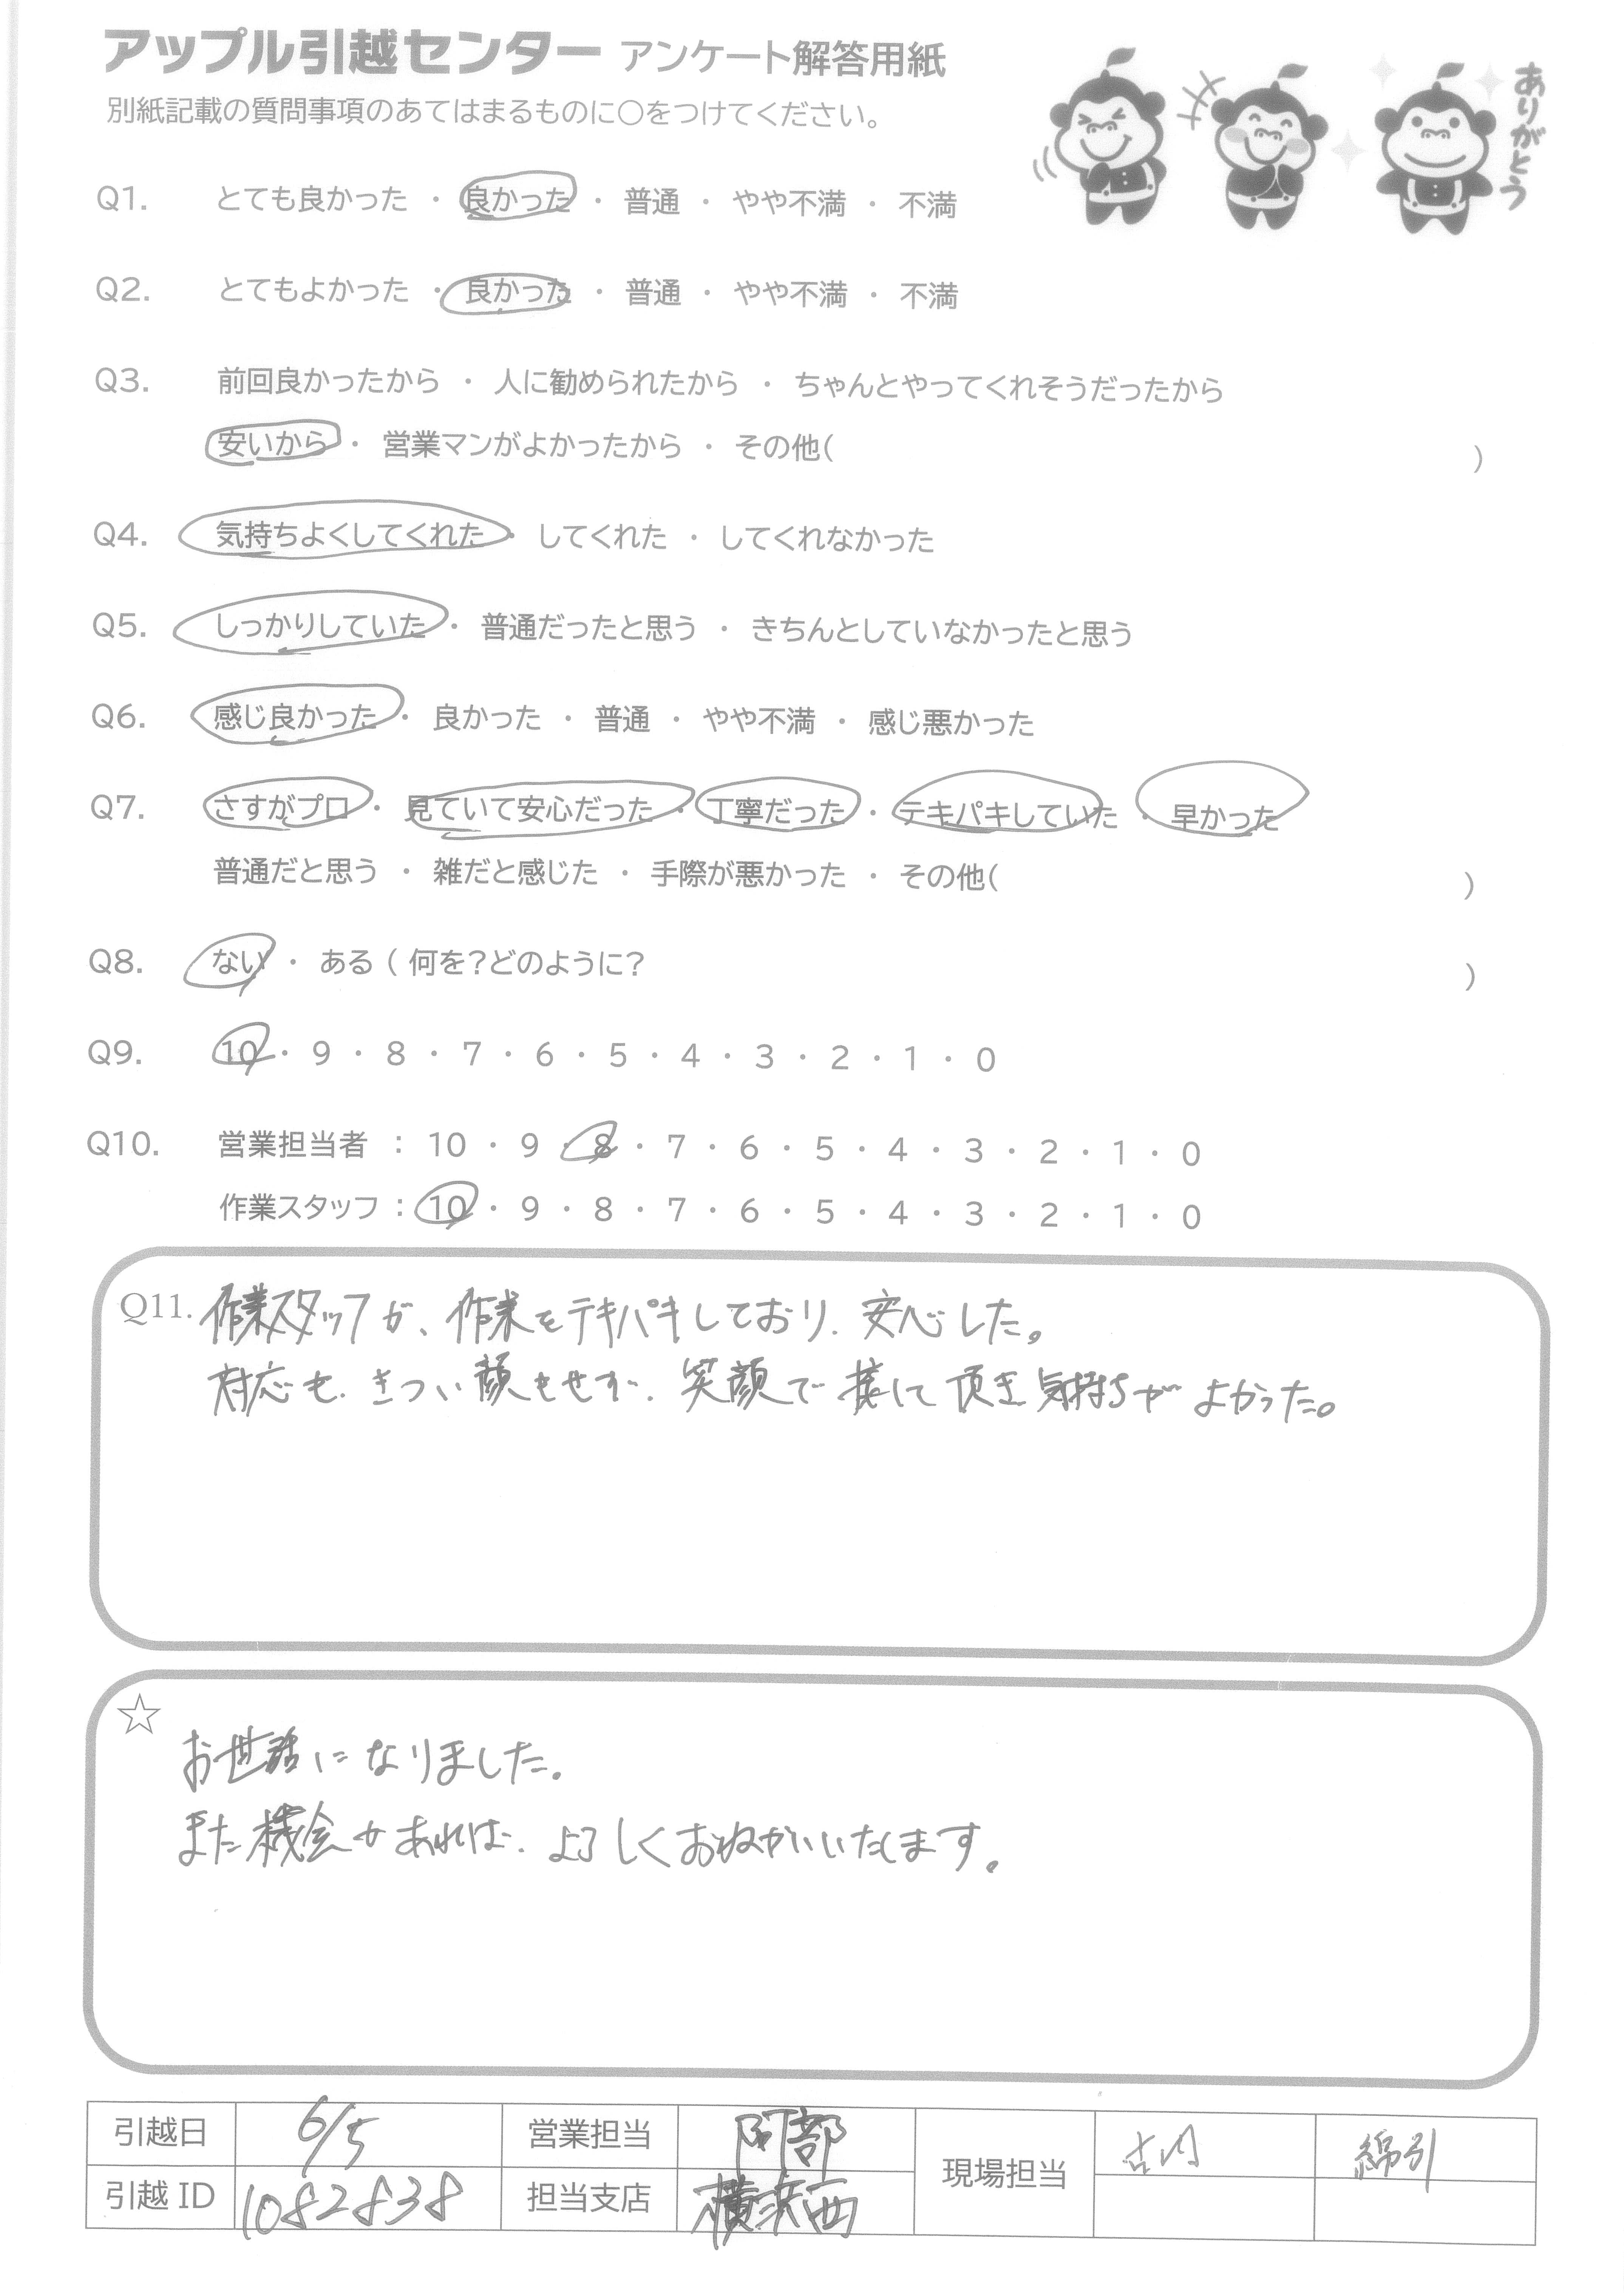 アップル引越センター アンケート解答用紙
別紙記載の質問事項のあてはまるものに○をつけてください。
ありがとう
Q1. とても良かった ・ 良かった ・ 普通 ・ やや不満 ・ 不満
Q2. とてもよかった ・ 良かった ・ 普通 ・ やや不満 ・ 不満
Q3. 前回良かったから ・ 人に勧められたから ・ ちゃんとやってくれそうだったから
安いから ・ 営業マンがよかったから ・ その他( )
Q4. 気持ちよくしてくれた ・ してくれた ・ してくれなかった
Q5. しっかりしていた ・ 普通だったと思う ・ きちんとしていなかったと思う
Q6. 感じ良かった ・ 良かった ・ 普通 ・ やや不満 ・ 感じ悪かった
Q7. さすがプロ ・ 見ていて安心だった ・ 丁寧だった ・ テキパキしていた ・ 早かった
普通だと思う ・ 雑だと感じた ・ 手際が悪かった ・ その他( )
Q8. ない ・ ある ( 何を?どのように? )
Q9. 10 ・ 9 ・ 8 ・ 7 ・ 6 ・ 5 ・ 4 ・ 3 ・ 2 ・ 1 ・ 0
Q10. 営業担当者 : 10 ・ 9 ・ 8 ・ 7 ・ 6 ・ 5 ・ 4 ・ 3 ・ 2 ・ 1 ・ 0
作業スタッフ : 10 ・ 9 ・ 8 ・ 7 ・ 6 ・ 5 ・ 4 ・ 3 ・ 2 ・ 1 ・ 0
Q11. 作業スタッフが、作業をテキパキしており、安心した。
対応も、きつい顔もせず、笑顔で接して頂き気持ちがよかった。
☆
お世話になりました。
また機会があれば、よろしくおねがいいたします。
引越日 6/5 営業担当 阿部 現場担当 古内 綿引
引越ID 1082838 担当支店 横浜西